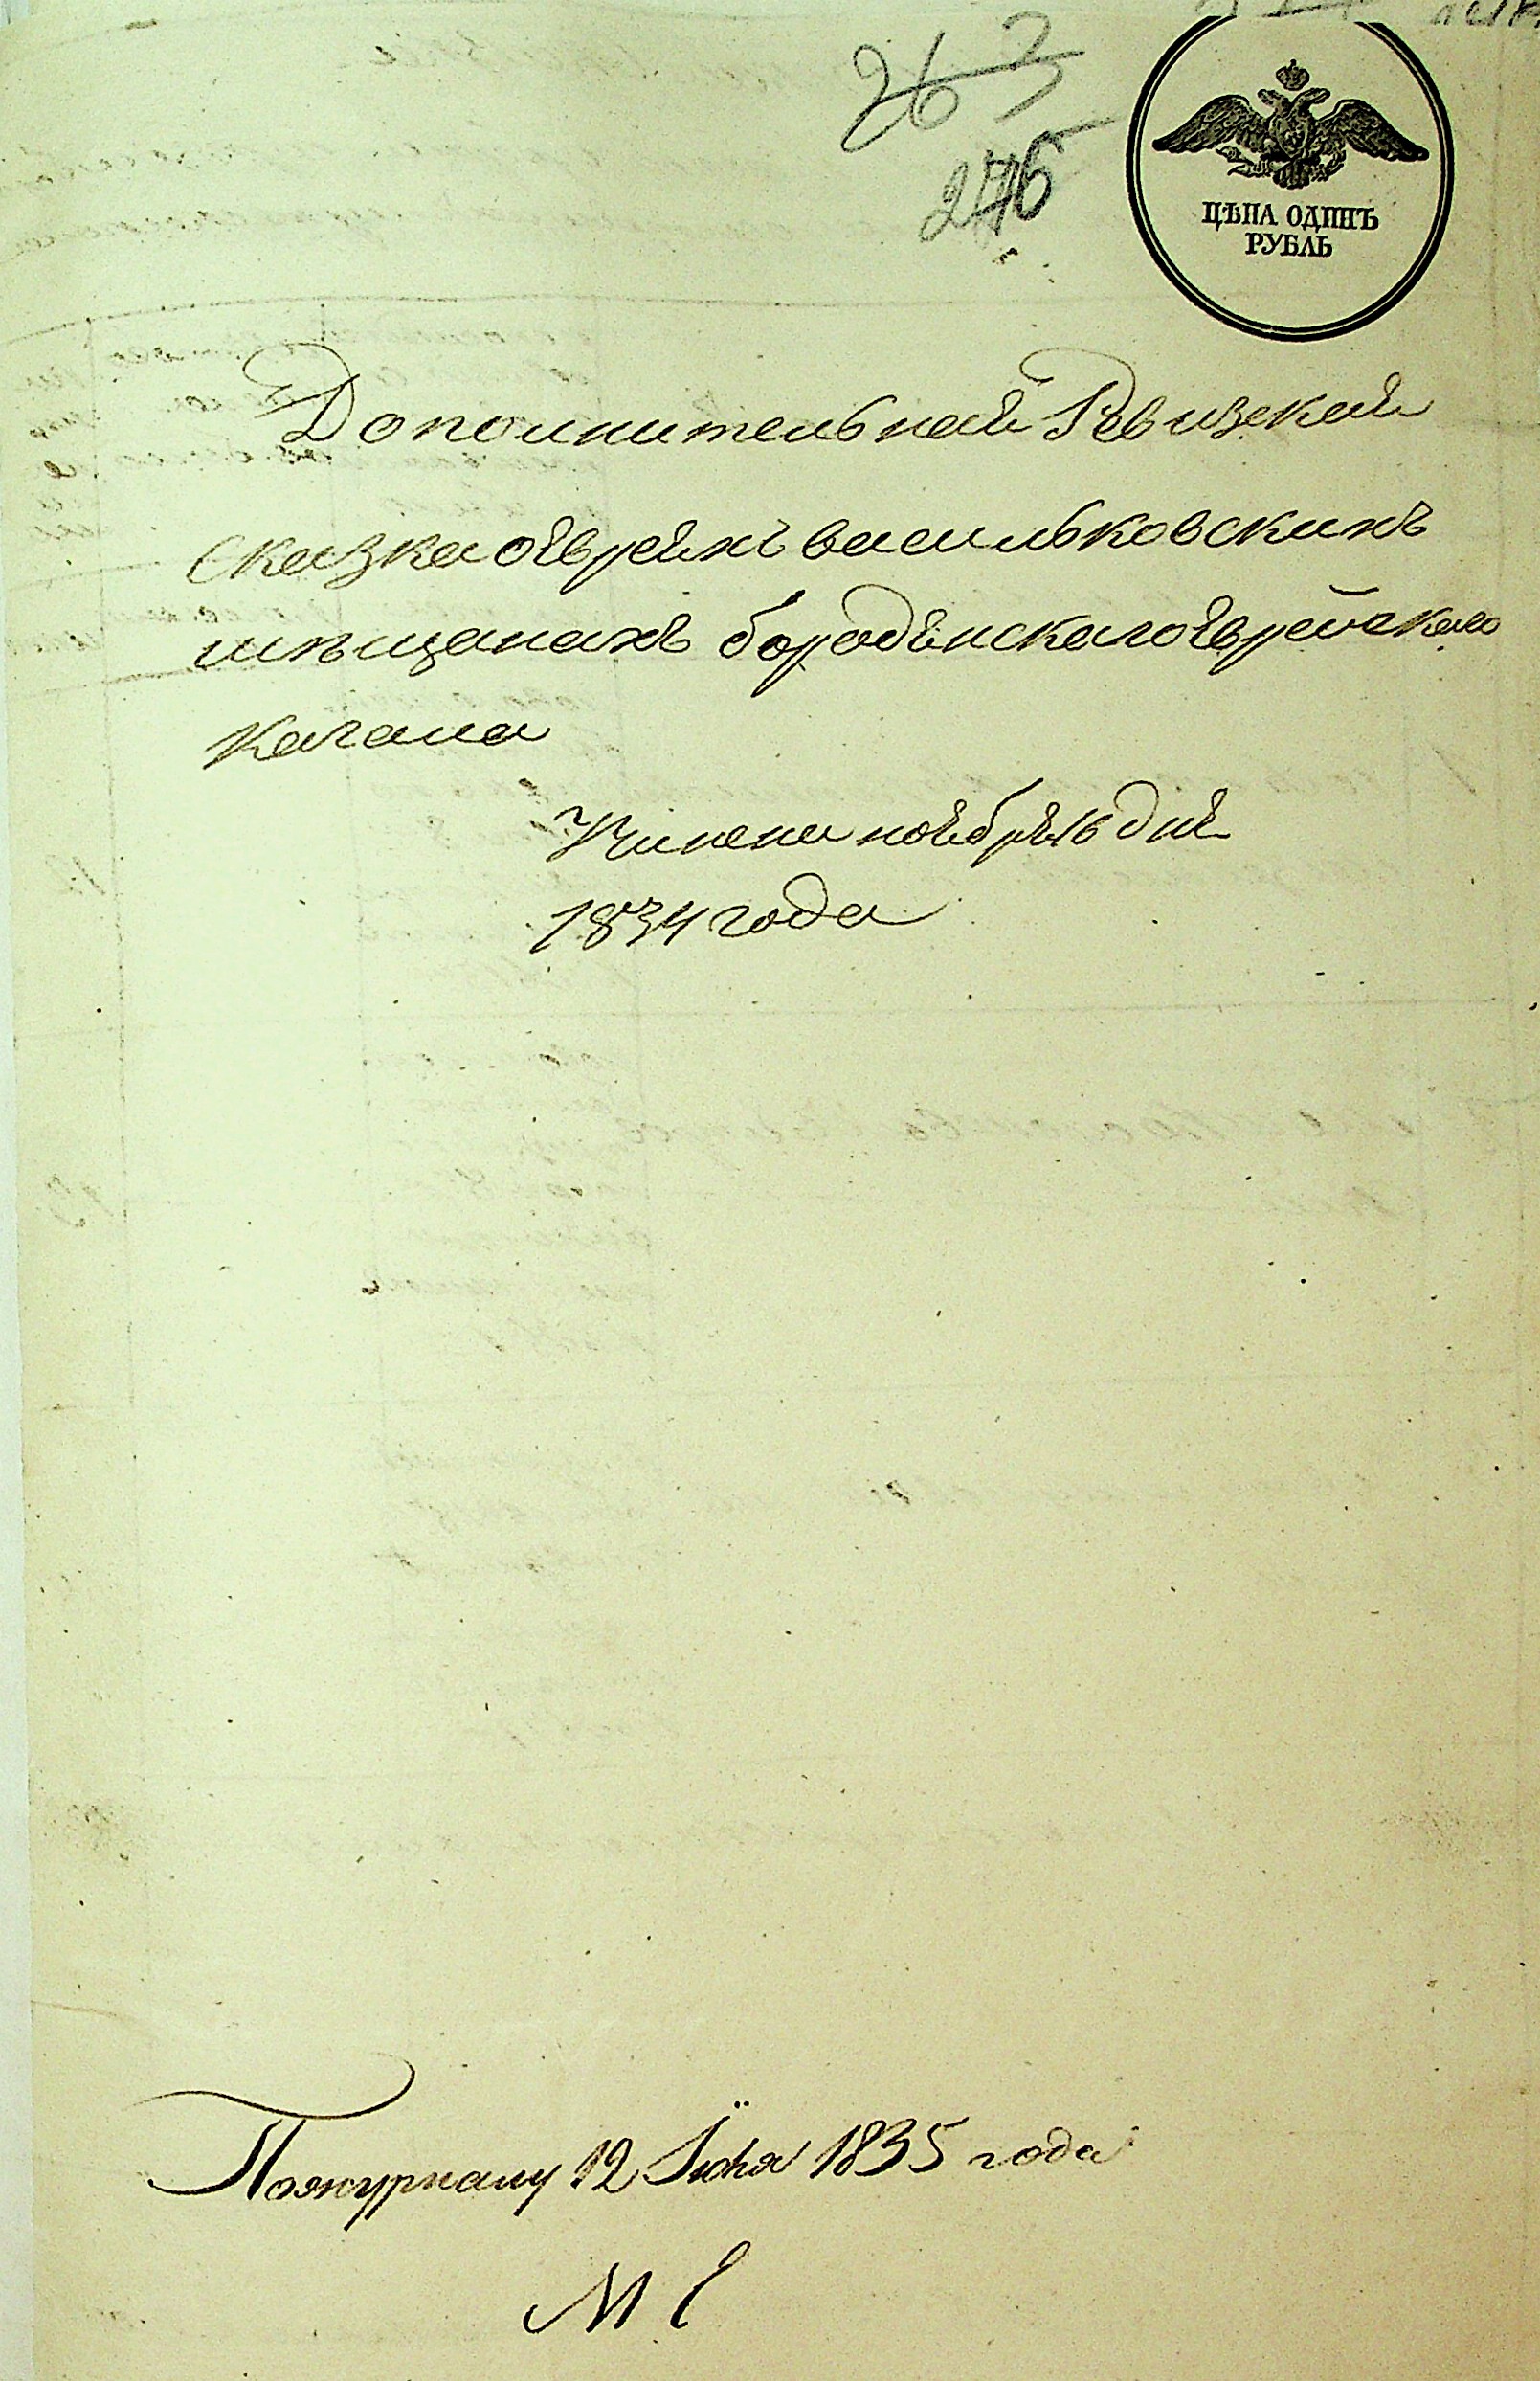 263
275
ЦѢНА ОДИНЪ
РУБЛЬ
Дополнительная Ревизская
сказка о еврѣяхъ васильковскихъ
мѣщанахъ бородянскаго еврейскаго
кагала
Учинена ноября 16 дня
1834 года
По журналу 12 Іюня 1835 года
М Е